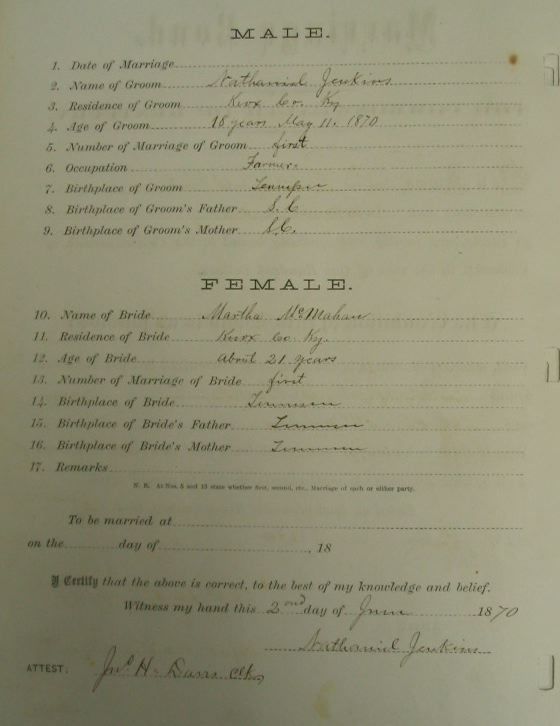 MALE.
1. Date of Marriage
2. Name of Groom Nathaniel Jenkins
3. Residence of Groom Knox Co. Ky
4. Age of Groom 18 years May 11. 1870
5. Number of Marriage of Groom first
6. Occupation Farmer
7. Birthplace of Groom Tennessee
8. Birthplace of Groom's Father S. C
9. Birthplace of Groom's Mother S.C.
FEMALE.
10. Name of Bride Martha McMahan
11. Residence of Bride Knox Co. Ky.
12. Age of Bride about 21 years
13. Number of Marriage of Bride first
14. Birthplace of Bride Tennessee
15. Birthplace of Bride's Father Tennessee
16. Birthplace of Bride's Mother Tennessee
17. Remarks
N. B. At Nos. 5 and 13 state whether first, second, etc., Marriage of each or either party.
To be married at
on the day of , 18
I Certify that the above is correct, to the best of my knowledge and belief.
Witness my hand this 2nd day of June 1870
Nathaniel Jenkins
ATTEST. Jno H. Davis Clk